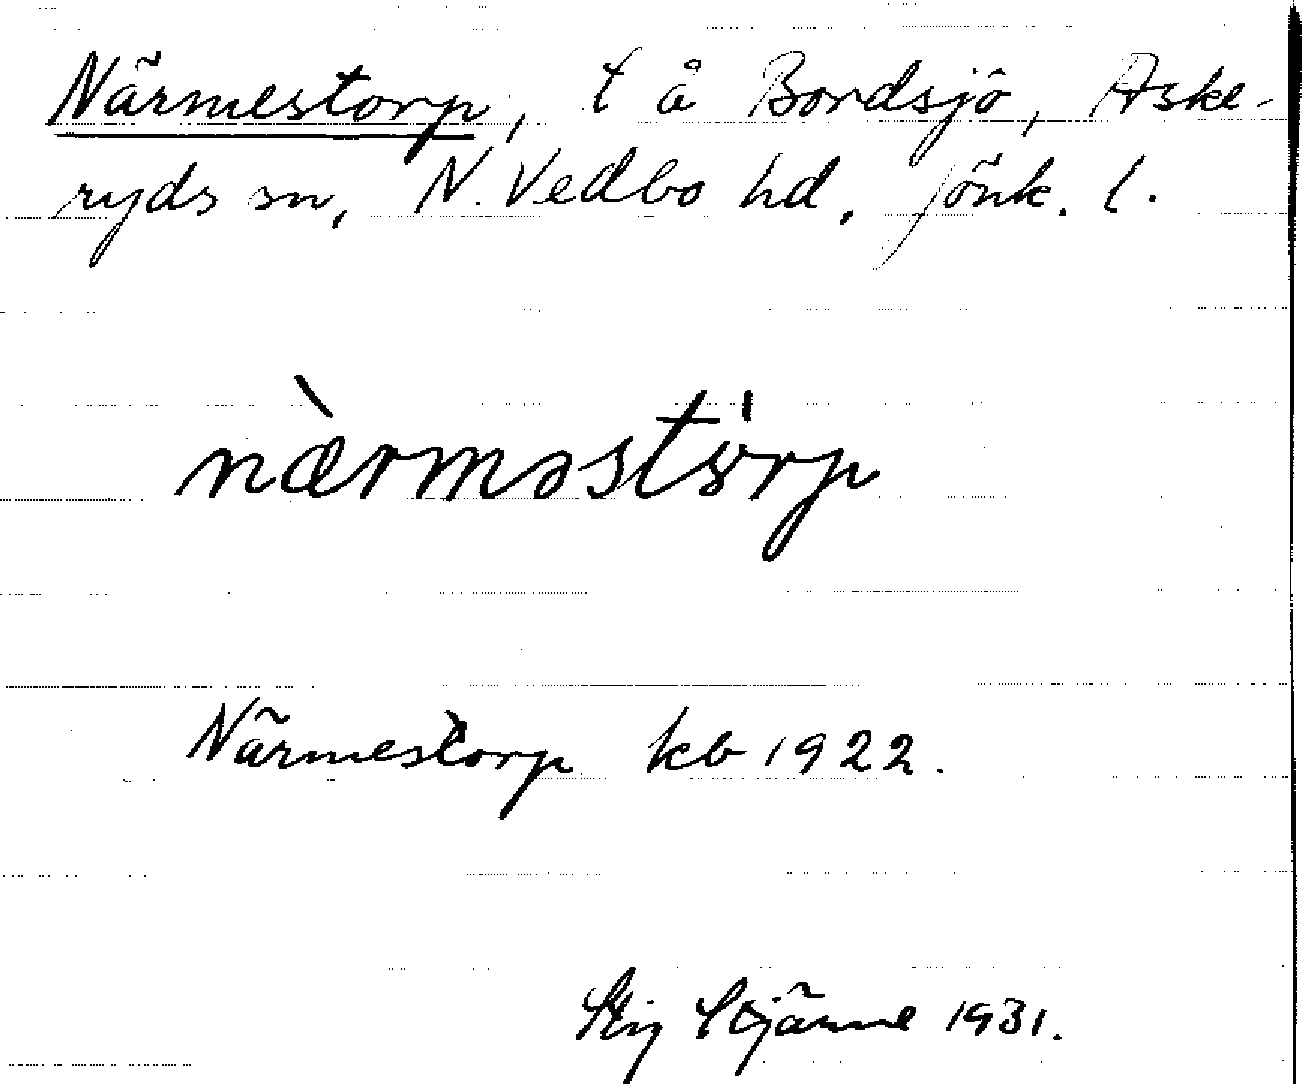 Närmestorp, t å Bordsjö, Aske-
ryds sn, N. Vedbo hd, Jönk. l.
næ̀rməstórp
Närmestorp kb 1922.
Stig Stjärne 1931.